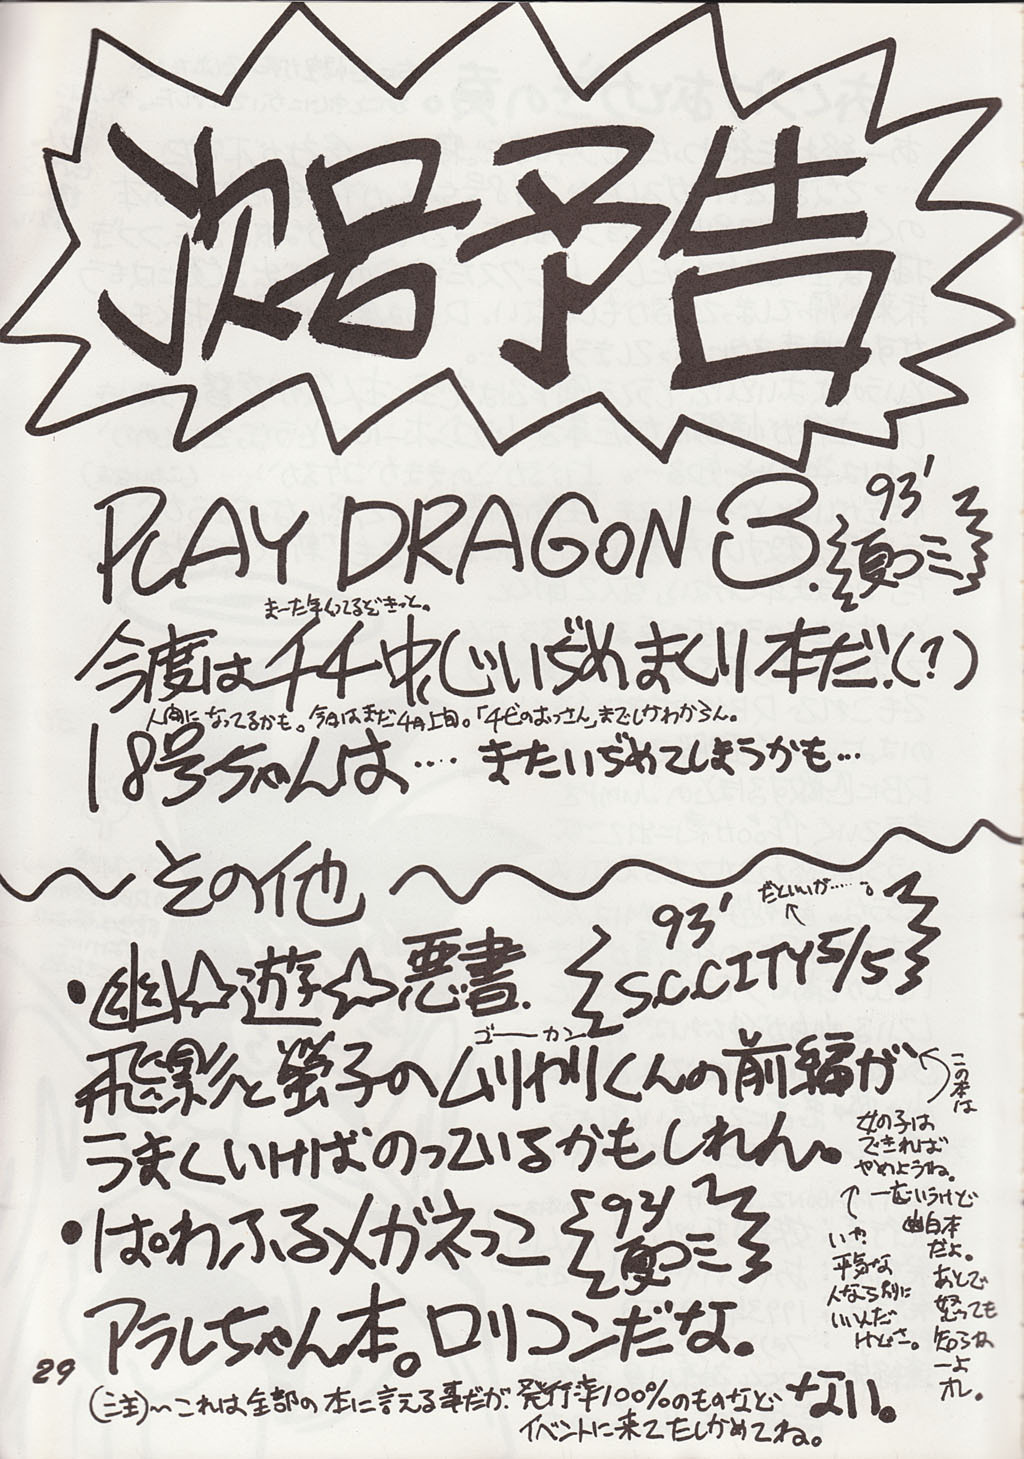 次号予告
PLAY DRAGON 3.
93'
夏コミ
まーた年くってるぞきっと。
今度はチチ中心いぢめまくり本だ!(?)
人間になってるかも。今日はまだ4月上旬。「チビのおっさん」までしかわからん。
18号ちゃんは‥‥またいぢめてしまうかも…
その他
だといいが……。
93'
・幽☆遊☆悪書.
S.C.CITY5/5
ゴーカン
飛影と螢子のムリヤリくんの前編が
うまくいけばのっているかもしれん。
この本は
女の子は
できれば
やめようね。
一応いうけど
幽白本
だよ。
あとで
怒っても
知らね
ーよ
オレ。
いや
平気な
人なら別に
いいんだ
けどさ。
・ぱわふるメガネっこ
93'
夏コミ
アラレちゃん本。ロリコンだな。
(注)〜これは全部の本に言える事だが、発行率100%のものなどない。
イベントに来てたしかめてね。
29